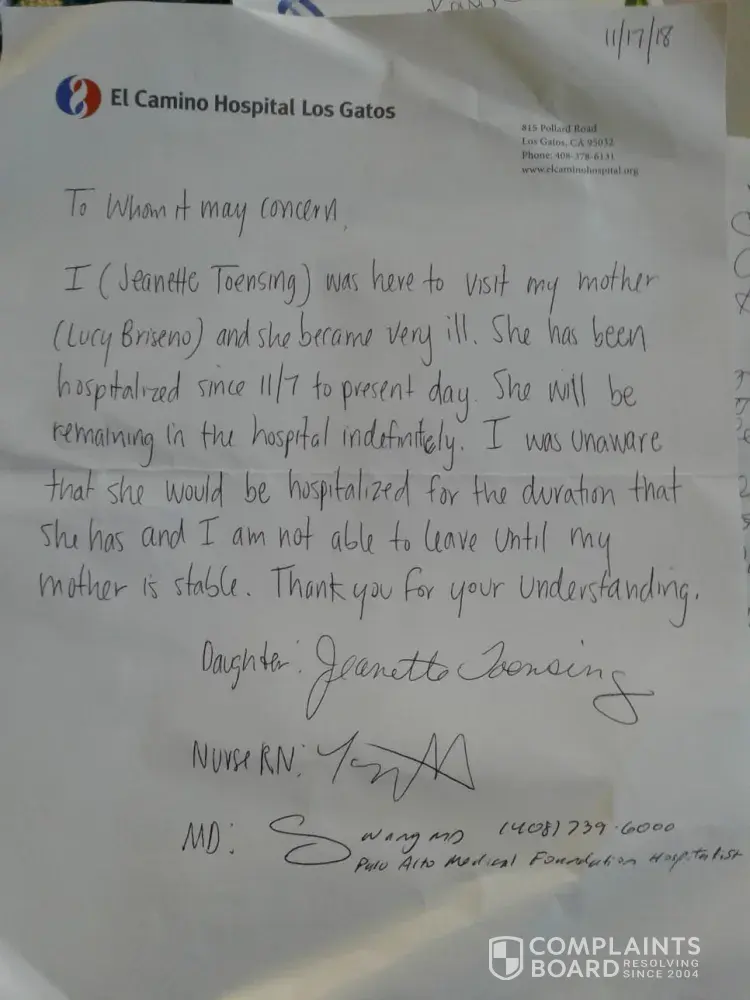 11/17/18
El Camino Hospital Los Gatos
815 Pollard Road
Los Gatos, CA 95032
Phone: 408-378-6131
www.elcaminohospital.org
To Whom it may concern,
I (Jeanette Toensing) was here to visit my mother
(Lucy Briseno) and she became very ill. She has been
hospitalized since 11/7 to present day. She will be
remaining in the hospital indefinitely. I was unaware
that she would be hospitalized for the duration that
she has and I am not able to leave until my
mother is stable. Thank you for your understanding.
Daughter: Jeanette Toensing
Nurse RN:
MD: S Wang MD (408) 739-6000
Palo Alto Medical Foundation Hospitalist
COMPLAINTS
BOARD RESOLVING
SINCE 2004